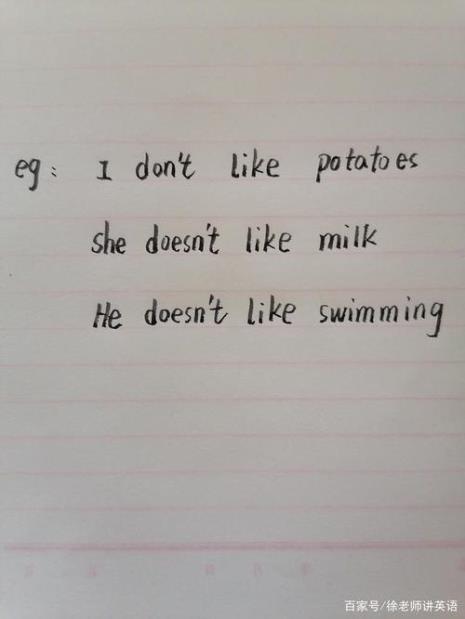 eg: I don't like potatoes
she doesn't like milk
He doesn't like swimming
百家号/徐老师讲英语